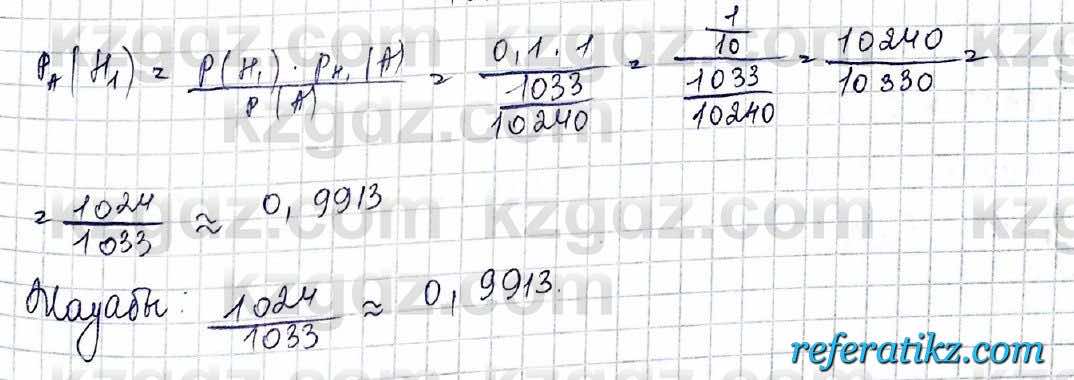 P_A(H₁) = P(H₁) · P_H₁(A) / P(A) = 0,1 · 1 / (1033/10240) = (1/10) / (1033/10240) = 10240/10330 =
= 1024/1033 ≈ 0,9913
Жауабы: 1024/1033 ≈ 0,9913.
kzgdz.com
referatikz.com